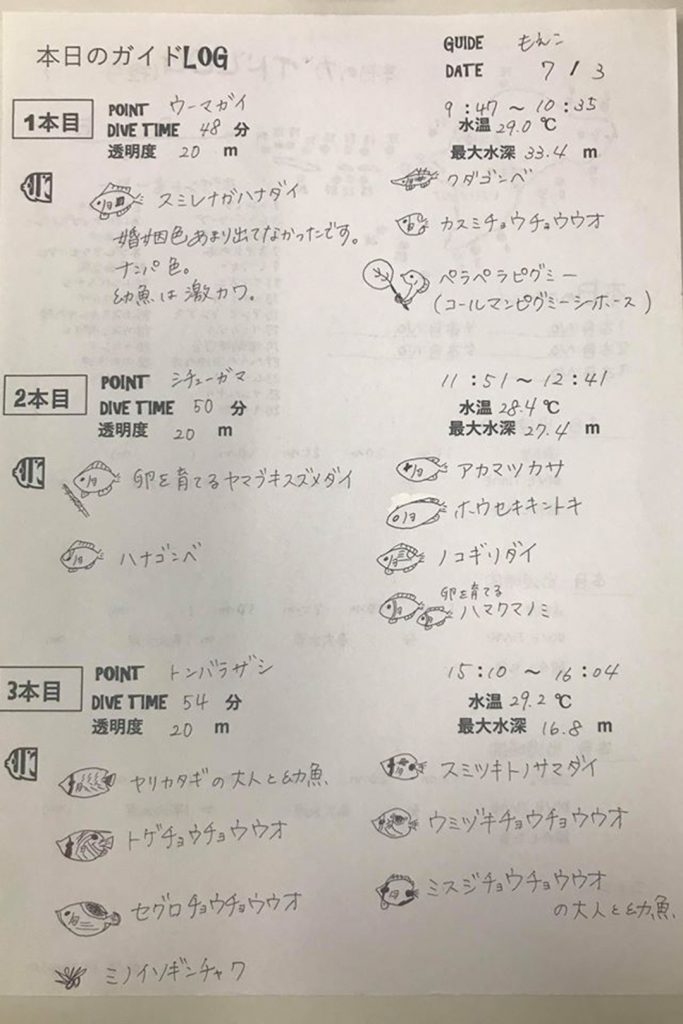 本日のガイドLOG
GUIDE もえこ
DATE 7 / 3
1本目
POINT ウーマガイ
DIVE TIME 48 分
透明度 20 m
9:47 ～ 10:35
水温 29.0 ℃
最大水深 33.4 m
スミレナガハナダイ
婚姻色あまり出てなかったです。
ナンパ色。
幼魚は激カワ。
クダゴンベ
カスミチョウチョウウオ
ペラペラピグミー
(コールマンピグミーシーホース)
2本目
POINT シチューガマ
DIVE TIME 50 分
透明度 20 m
11:51 ～ 12:41
水温 28.4 ℃
最大水深 27.4 m
卵を育てるヤマブキスズメダイ
ハナゴンベ
アカマツカサ
ホウセキキントキ
ノコギリダイ
卵を育てる
ハマクマノミ
3本目
POINT トンバラザシ
DIVE TIME 54 分
透明度 20 m
15:10 ～ 16:04
水温 29.2 ℃
最大水深 16.8 m
ヤリカタギの大人と幼魚
トゲチョウチョウウオ
セグロチョウチョウウオ
ミノイソギンチャク
スミツキトノサマダイ
ウミヅキチョウチョウウオ
ミスジチョウチョウウオ
の大人と幼魚